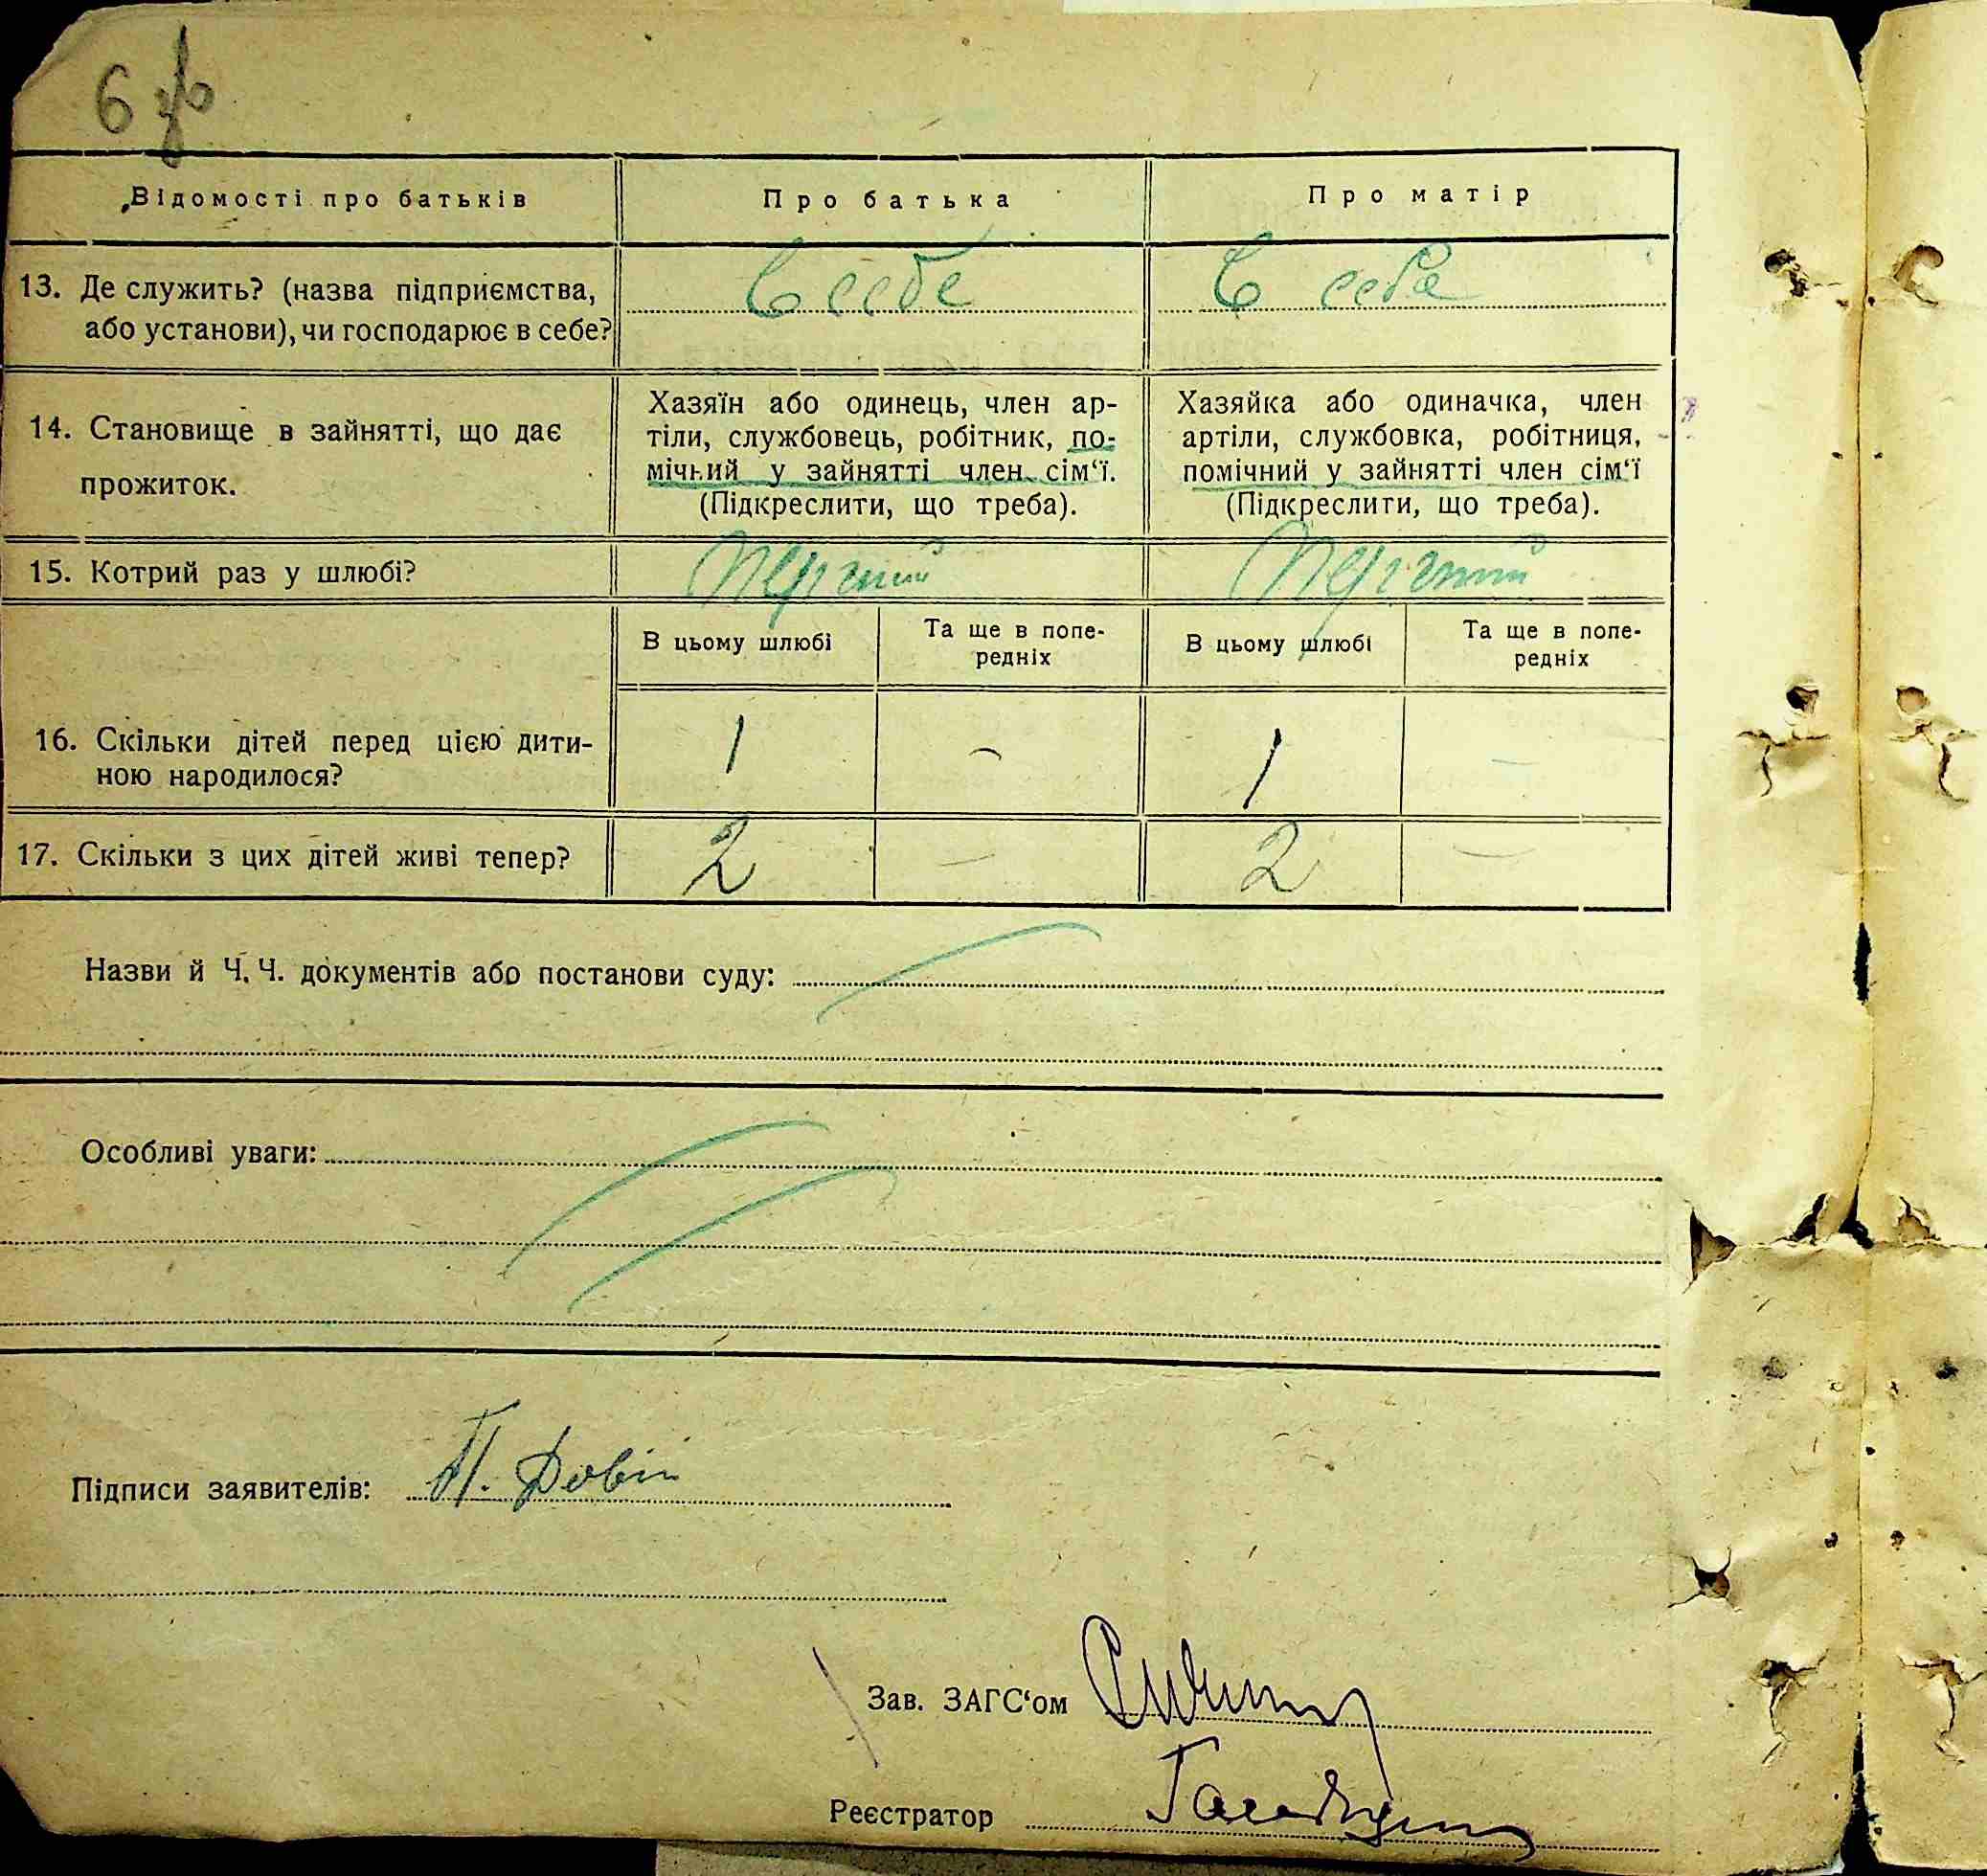 6 зв
Відомості про батьків
Про батька
Про матір
13. Де служить? (назва підприємства,
або установи), чи господарює в себе?
В себе
В себе
14. Становище в зайнятті, що дає
прожиток.
Хазяїн або одинець, член ар-
тіли, службовець, робітник, по-
мічний у зайнятті член сім‘ї.
(Підкреслити, що треба).
Хазяйка або одиначка, член
артіли, службовка, робітниця,
помічний у зайнятті член сім‘ї
(Підкреслити, що треба).
15. Котрий раз у шлюбі?
Перший
Перший
В цьому шлюбі
Та ще в попе-
редніх
В цьому шлюбі
Та ще в попе-
редніх
16. Скільки дітей перед цією дити-
ною народилося?
1 – 1 –
17. Скільки з цих дітей живі тепер?
2 – 2 –
Назви й Ч. Ч. документів або постанови суду:
Особливі уваги:
Підписи заявителів: П. Довій
Зав. ЗАГС‘ом
Реєстратор